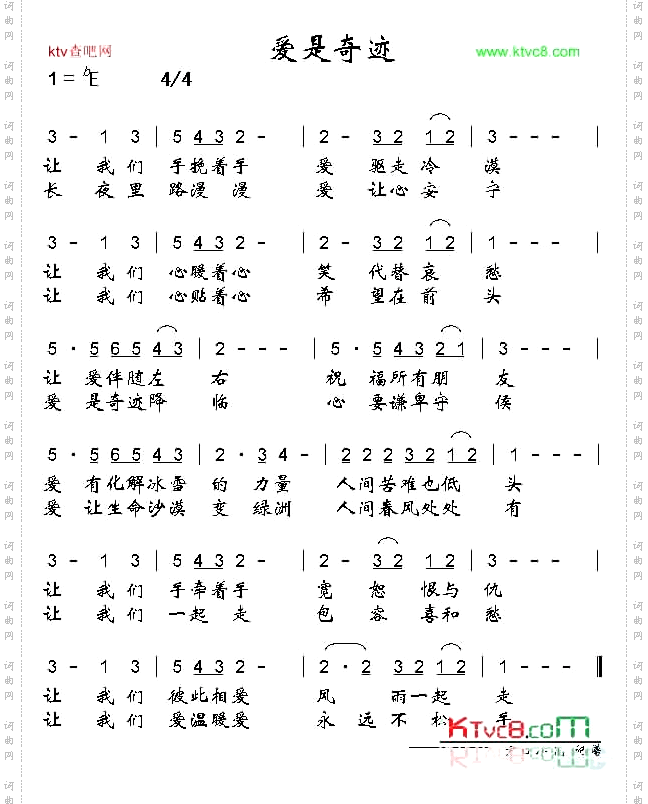 爱是奇迹
ktv查吧网
www.ktvc8.com
1=♭E 4/4
3 - 1 3 | 5 4 3 2 - | 2 - 3 2 1 2 | 3 - - - |
让 我们 手挽着手 爱 驱走冷 漠
长 夜里 路漫 漫 爱 让心安 宁
3 - 1 3 | 5 4 3 2 - | 2 - 3 2 1 2 | 3 - - - |
让 我们 心暖着心 笑 代替哀 愁
让 我们 心贴着心 希 望在前 头
5 · 5 6 5 4 3 | 2 - - - | 5 · 5 4 3 2 1 | 3 - - - |
让 爱伴随左 右 祝 福所有朋 友
爱 是奇迹降 临 心 要谦卑守 候
5 · 5 6 5 4 3 | 2 · 3 4 - | 2 2 2 3 2 1 2 | 1 - - - |
爱 有化解冰雪 的 力量 人间苦难也低 头
爱 让生命沙漠 变 绿洲 人间春风处处 有
3 - 1 3 | 5 4 3 2 - | 2 - 3 2 1 2 | 3 - - - |
让 我们 手牵着手 宽 恕 恨与 仇
让 我们 一起 走 包 容 喜和 愁
3 - 1 3 | 5 4 3 2 - | 2 · 2 3 2 1 2 | 1 - - - ‖
让 我们 彼此相爱 风 雨一起 走
让 我们 爱温暖爱 永 远不松 手
KTvc8.com
词曲网
词曲网
词曲网
词曲网
词曲网
词曲网
词曲网
词曲网
词曲网
词曲网
词曲网
词曲网
词曲网
词曲网